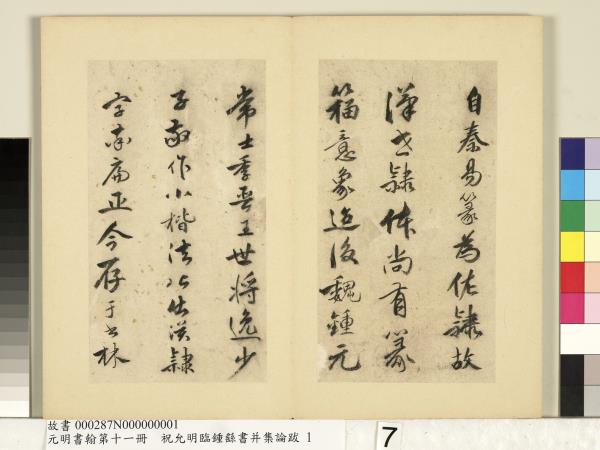 自秦易篆為佐隸故
漢世隸体尚有篆
籀意象迨後魏鍾元
常士季晋王世将逸少
子敬作小楷法皆出漢隸
字亦扁正今存于世林
故書 000287N000000001
元明書翰第十一冊 祝允明臨鍾繇書并集論跋 1
7